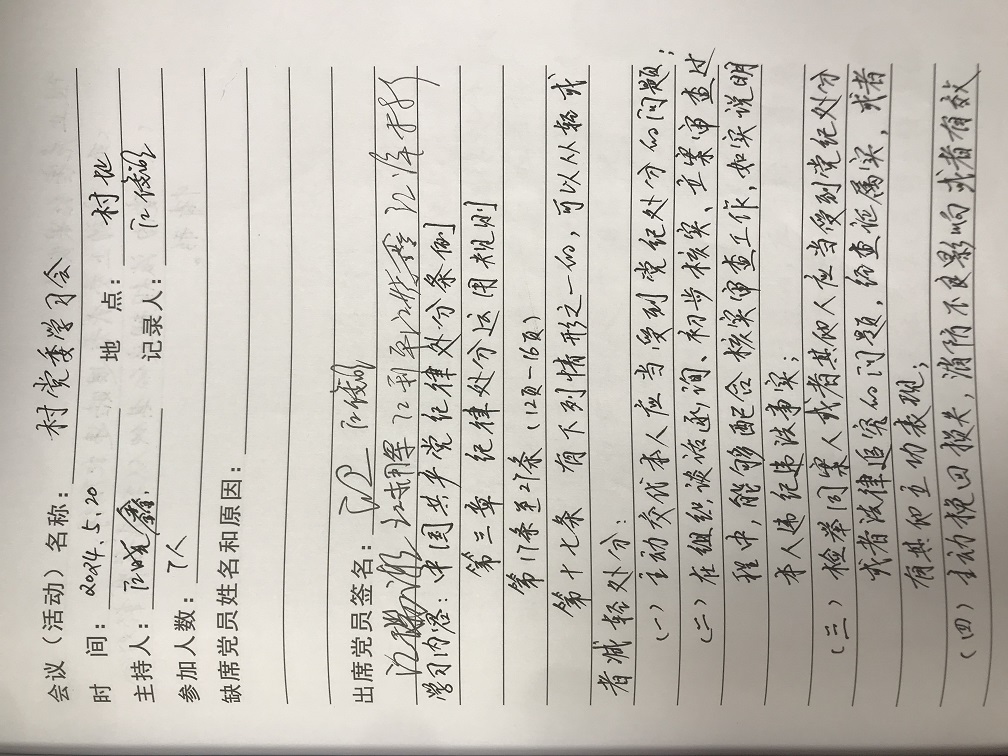 会议（活动）名称：村党委学习会
时 间：2024.5.20 地 点：村
主持人： 记录人：
参加人数：7人
缺席党员姓名和原因：
出席党员签名：
学习内容：中国共产党纪律处分条例
第三章 纪律处分运用规则
第17条至27条（12页-16页）
第十七条 有下列情形之一的，可以从轻或
者减轻处分：
（一）主动交代本人应当受到党纪处分的问题；
（二）在组织谈话函询、初步核实、立案审查过
程中，能够配合核实审查工作，如实说明
本人违纪违法事实；
（三）检举同案人或者其他人应当受到党纪处分
或者法律追究的问题，经查证属实，或者
有其他立功表现；
（四）主动挽回损失，消除不良影响或者有效